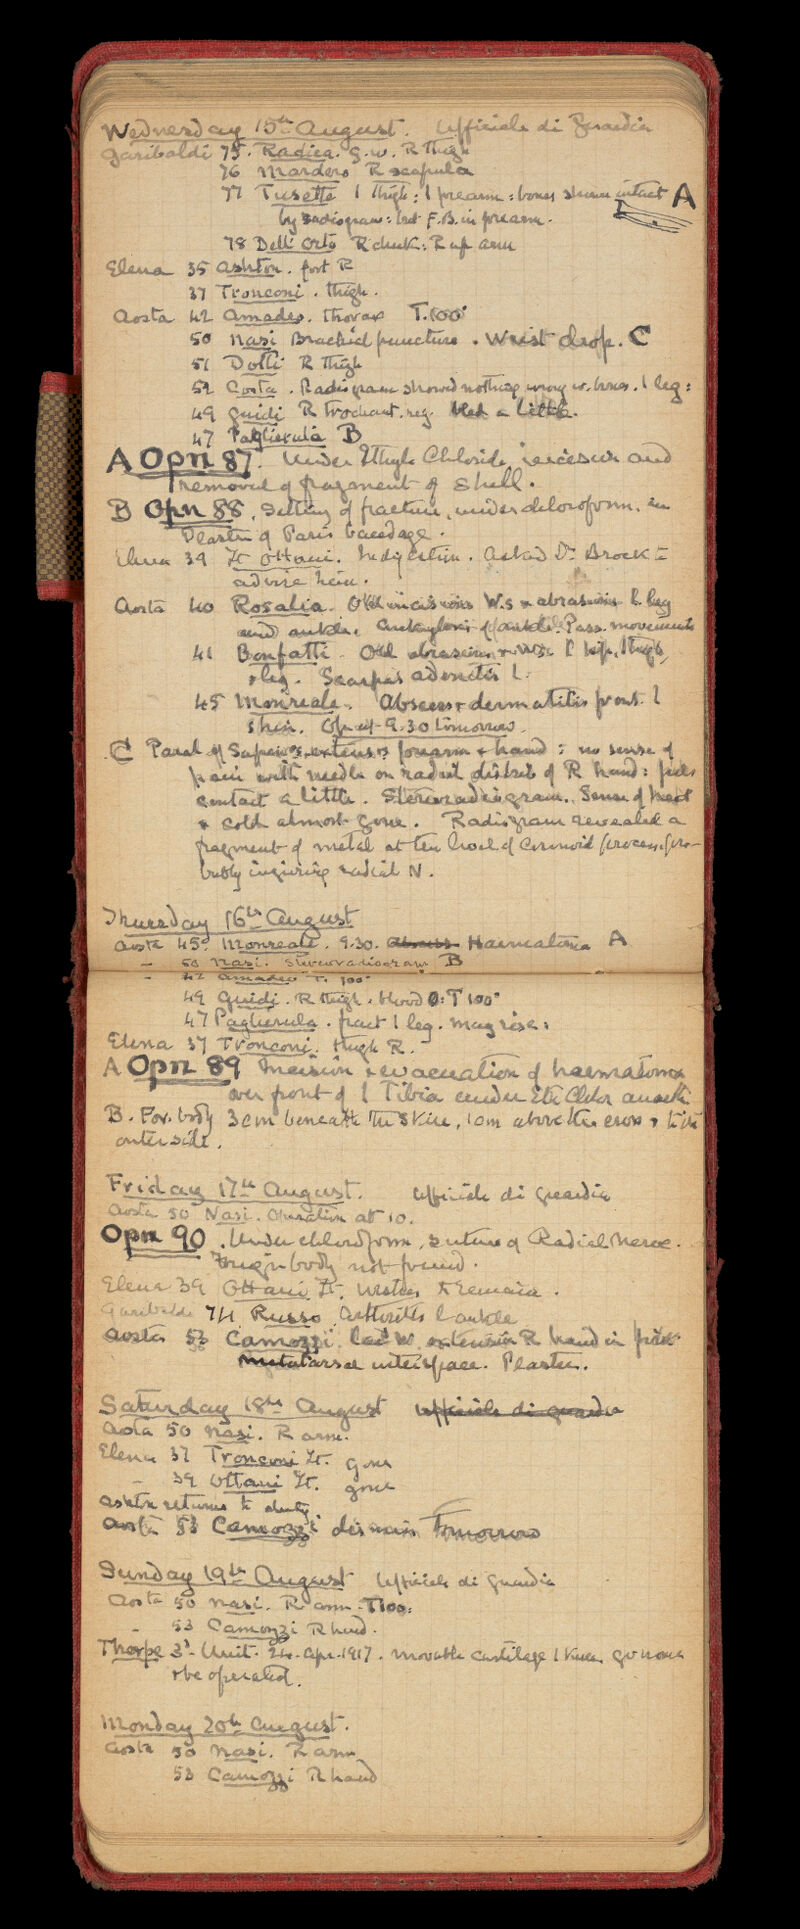 Wednesday 15th August. Ufficiale di Guardia
Garibaldi 75. Radica. G.W. R Thigh
76 Mardero R scapula
77 Tusette l thigh: l forearm: bones shown intact A
by radiogram: but F.B. in forearm.
78 Delli Orto R cheek: R up arm
Elena 35 Ashton. foot R
37 Tronconi. thigh.
Aosta 42 Amadeo. Thorax T.100°
50 Nasi Brachial puncture. Wrist drop. C
51 Dotti R thigh
52 Costa. Radiogram showed nothing wrong w. bones. l leg:
49 Guidi R Trochant. reg. bled a little.
47 Paglierula B
A Opn 87. Under Ethyle Chloride incision and
removal of fragment of shell.
B Opn 88. Setting of fracture, under chloroform, in
Plaster of Paris bandage.
Elena 39 Lt Ottani. Indigestion. Asked Dr Brock to
advise him.
Aosta 40 Rosalia. Old incisions W.s & abrasions l leg
and ankle. Ankylosis of ankle. Pass. movements
41 Bonfatti. Old abrasions l hip, thigh,
& leg. Scarpas adenitis l.
45 Monreale. Abscess & dermatitis front l
shin. Op at 9.30 tomorrow.
C Paral of extensors forearm & hand: no sense of
pain with needle on radial distrib of R hand: feels
contact a little. Stereoradiogram. Sense of heat
& cold almost gone. Radiogram revealed a
fragment of metal at the level of Coronoid process, pro-
bably injuring radial N.
Thursday 16th August
Aosta 45 Monreale. 9.30. Haematoma A
- 50 Nasi. Stereoradiogram B
- 42 Amadeo T. 100°
49 Guidi. R thigh. blood T 100°
47 Paglierula. fract l leg. may rise:
Elena 37 Tronconi. thigh R.
A Opn 89 Incision & evacuation of haematoma
over front of l Tibia under Eth Chlor anaesth
B. For. body 3cm beneath the skin, 1cm above the cross &
outer side.
Friday 17th August. Ufficiale di Guardia
Aosta 50 Nasi. Operation at 10.
Opn 90. Under chloroform, suture of Radial Nerve.
Foreign body not found.
Elena 39 Ottani Lt. wishes to remain.
Garibaldi 74 Russo Arthritis l ankle
Aosta 53 Camozzi. lac W. extensor R hand in first
metatarsal interspace. Plaster.
Saturday 18th August Ufficiale di guardia
Aosta 50 Nasi. R arm.
Elena 37 Tronconi Lt. gone
- 39 Ottani Lt. gone
Ashton returns to duty
Aosta 53 Camozzi dismiss Tomorrow
Sunday 19th August Ufficiale di Guardia
Aosta 50 Nasi. R arm. T100:
- 53 Camozzi R hand.
Thorpe 3d Unit. 24. Apr. 1917. movable cartilage l knee. go home
& be operated.
Monday 20th August.
Aosta 50 Nasi. R arm
53 Camozzi R hand